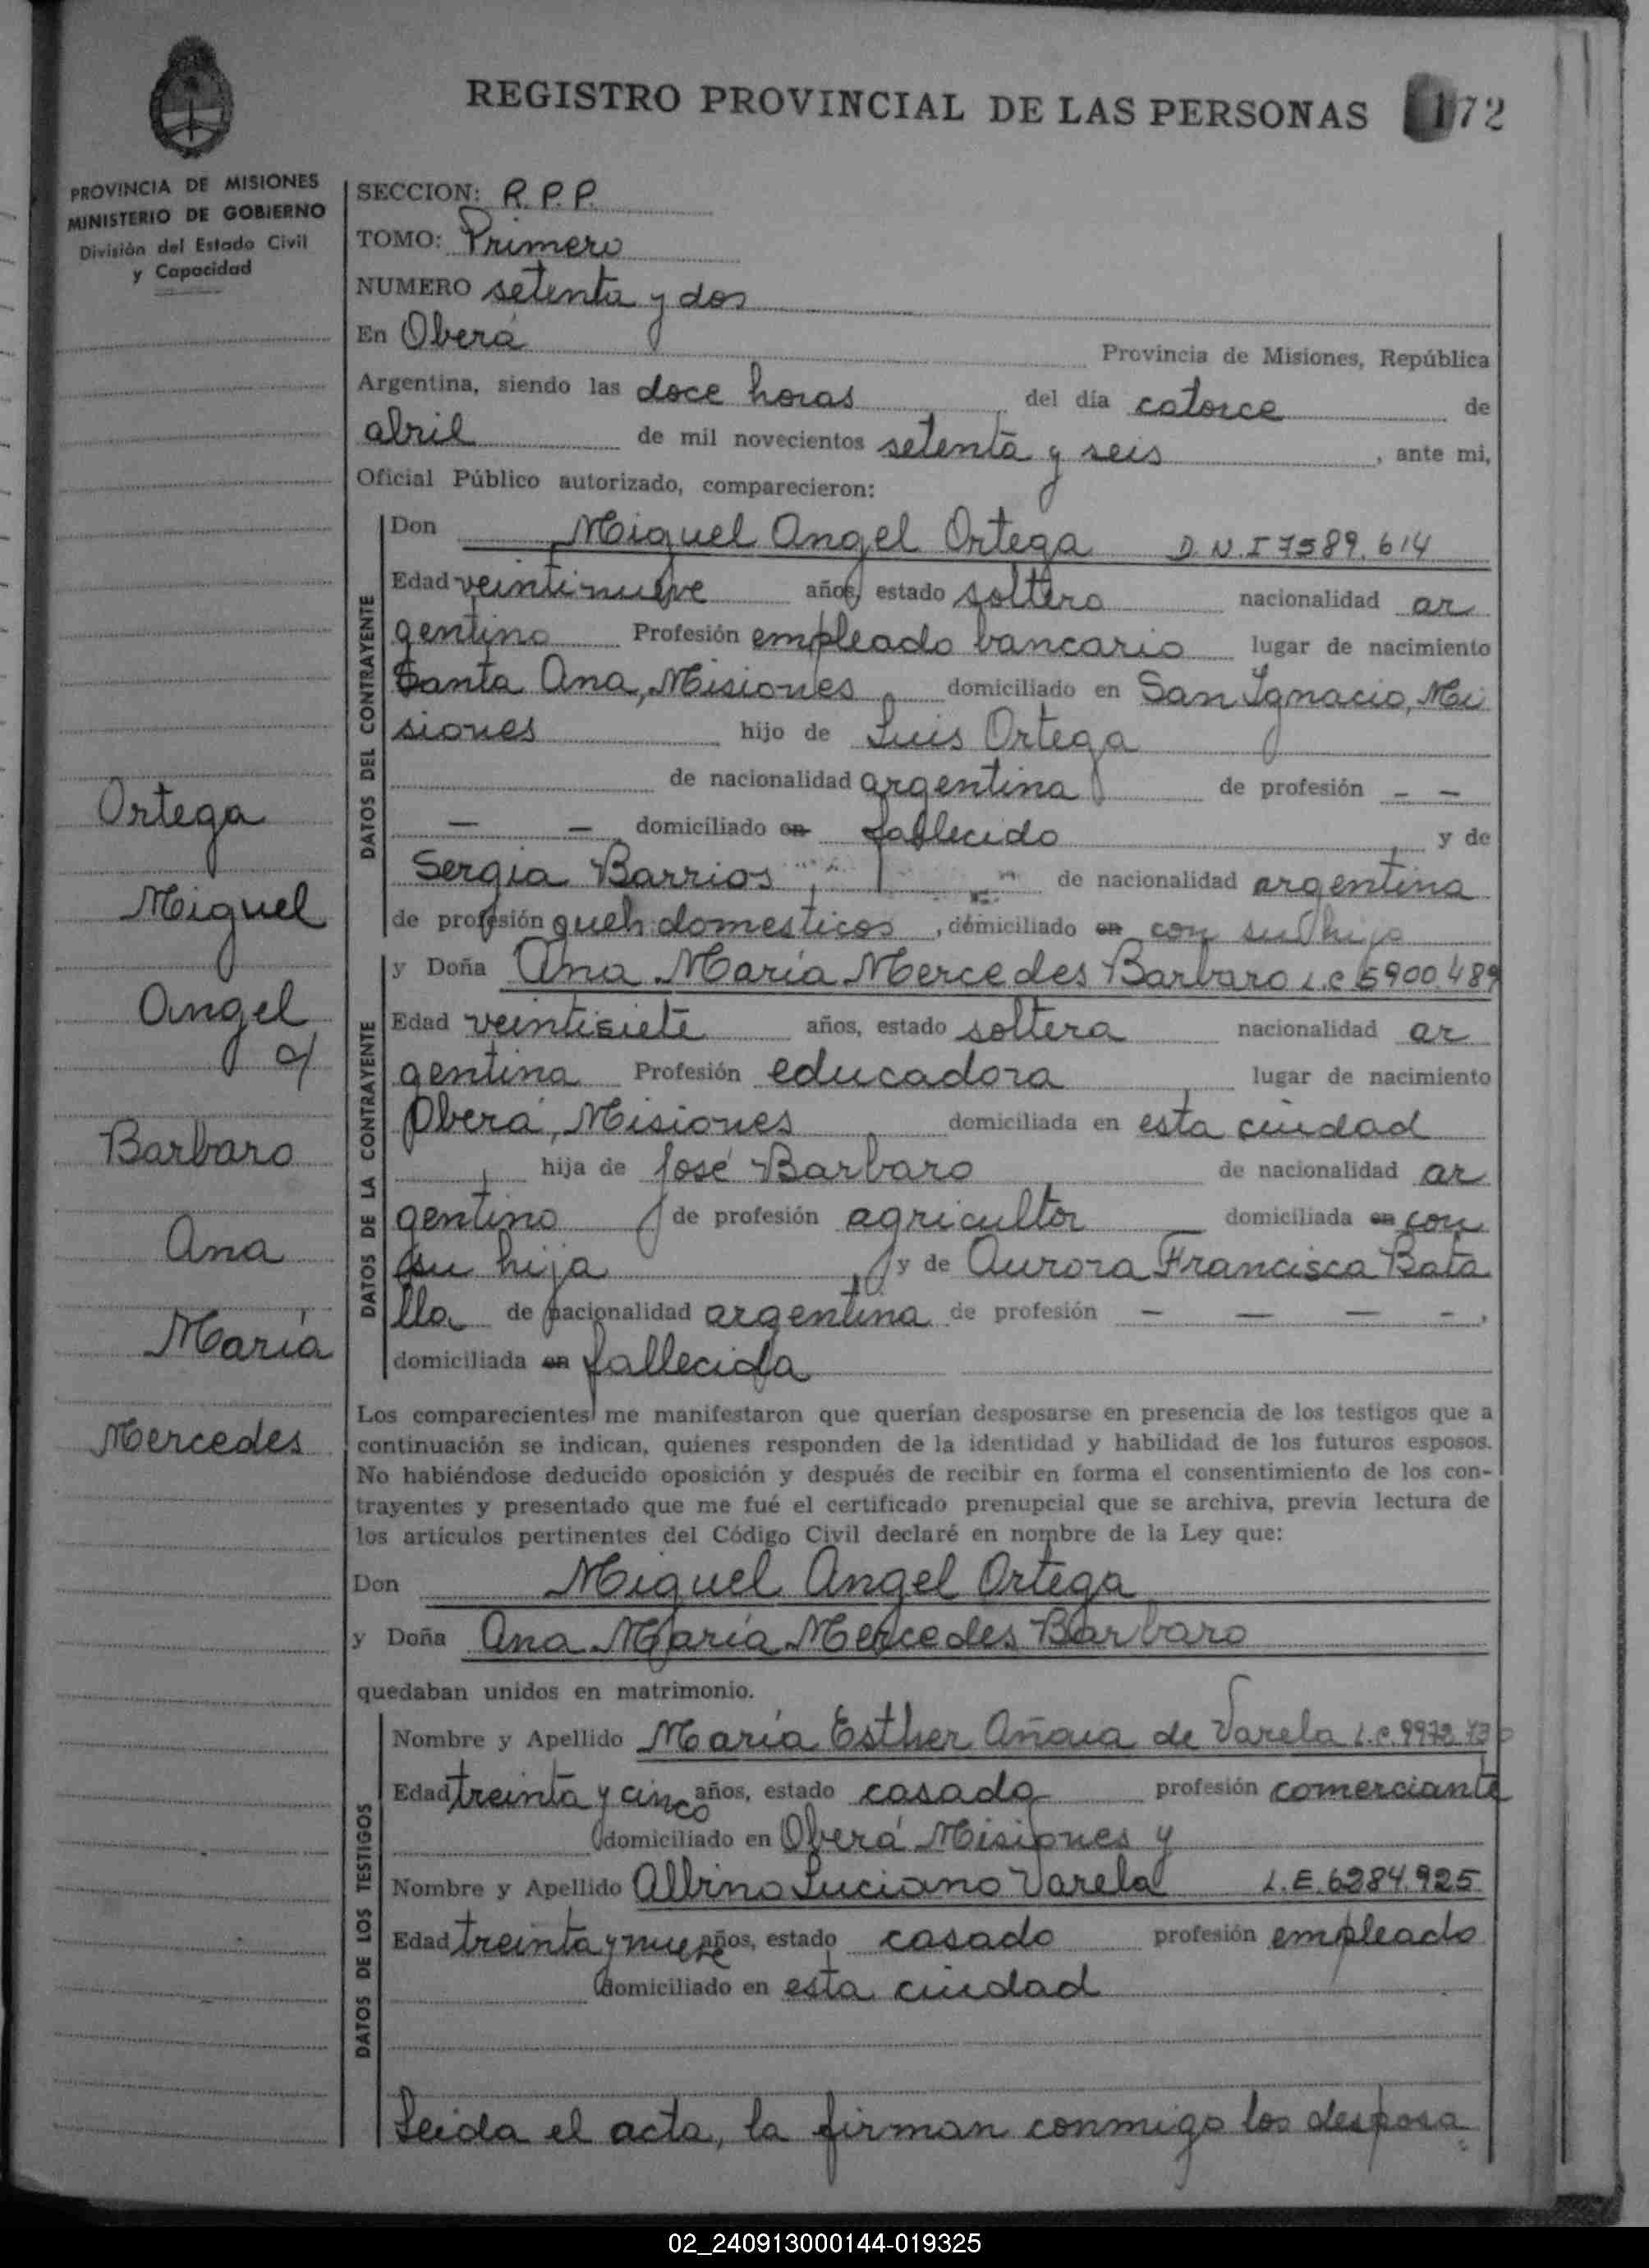 REGISTRO PROVINCIAL DE LAS PERSONAS 172
PROVINCIA DE MISIONES
MINISTERIO DE GOBIERNO
División del Estado Civil
y Capacidad
SECCION: R.P.P.
TOMO: Primero
NUMERO setenta y dos
En Oberá Provincia de Misiones, República
Argentina, siendo las doce horas del día catorce de
abril de mil novecientos setenta y seis, ante mi,
Oficial Público autorizado, comparecieron:
DATOS DEL CONTRAYENTE
Don Miguel Angel Ortega D.N.I 7589.614
Edad veintinueve años, estado soltero nacionalidad ar
gentino Profesión empleado bancario lugar de nacimiento
Santa Ana, Misiones domiciliado en San Ignacio, Mi
siones hijo de Luis Ortega
de nacionalidad argentina de profesión - -
- - domiciliado en fallecido y de
Sergia Barrios de nacionalidad argentina
de profesión queh. domesticos, domiciliado en con su hijo
DATOS DE LA CONTRAYENTE
y Doña Ana María Mercedes Barbaro L.C 5900.489
Edad veintisiete años, estado soltera nacionalidad ar
gentina Profesión educadora lugar de nacimiento
Oberá, Misiones domiciliada en esta ciudad
hija de José Barbaro de nacionalidad ar
gentino de profesión agricultor domiciliada en con
su hija y de Aurora Francisca Bata
lla de nacionalidad argentina de profesión - - - -,
domiciliada en fallecida
Los comparecientes me manifestaron que querían desposarse en presencia de los testigos que a
continuación se indican, quienes responden de la identidad y habilidad de los futuros esposos.
No habiéndose deducido oposición y después de recibir en forma el consentimiento de los con-
trayentes y presentado que me fué el certificado prenupcial que se archiva, previa lectura de
los artículos pertinentes del Código Civil declaré en nombre de la Ley que:
Don Miguel Angel Ortega
y Doña Ana María Mercedes Barbaro
quedaban unidos en matrimonio.
DATOS DE LOS TESTIGOS
Nombre y Apellido María Esther Añaia de Varela L.C.
Edad treinta y cinco años, estado casada profesión comerciante
domiciliado en Oberá Misiones y
Nombre y Apellido Albino Luciano Varela L.E. 6284.925
Edad treinta y nueve años, estado casado profesión empleado
domiciliado en esta ciudad
Leida el acta, la firman conmigo los desposa
Ortega
Miguel
Angel
c/
Barbaro
Ana
María
Mercedes
02_240913000144-019325